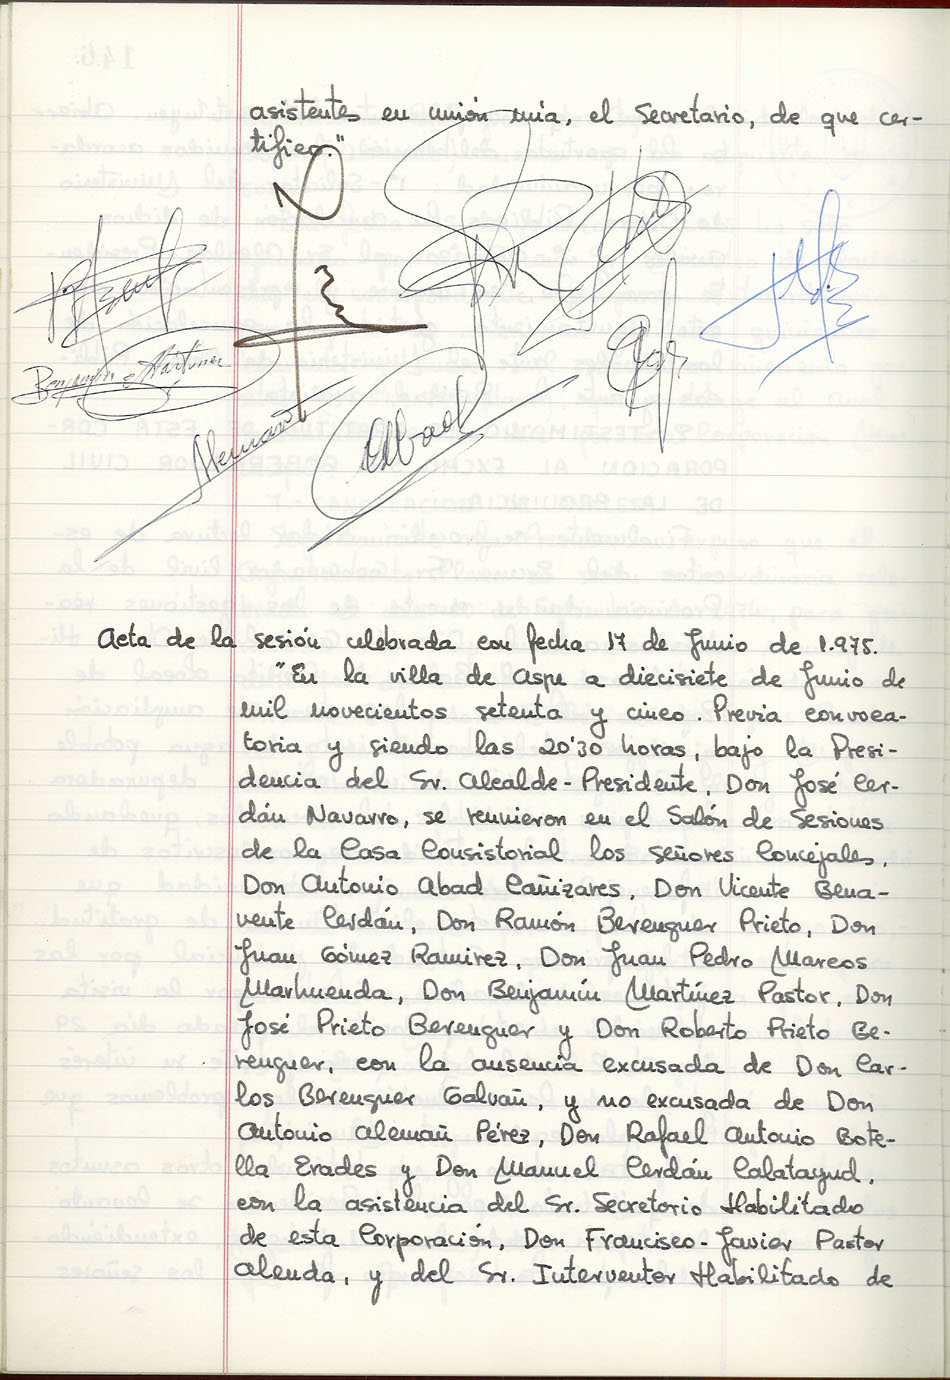 asistentes en unión mía, el Secretario, de que cer-
tifico."
Benjamín Martínez
Alemañ
Abad
Acta de la sesión celebrada con fecha 17 de Junio de 1.975.
"En la villa de Aspe a diecisiete de Junio de
mil novecientos setenta y cinco. Previa convoca-
toria y siendo las 20'30 horas, bajo la Presi-
dencia del Sr. Alcalde-Presidente, Don José Cer-
dán Navarro, se reunieron en el Salón de Sesiones
de la Casa Consistorial los señores Concejales,
Don Antonio Abad Cañizares, Don Vicente Bena-
vente Cerdán, Don Ramón Berenguer Prieto, Don
Juan Gómez Ramirez, Don Juan Pedro Marcos
Marhuenda, Don Benjamín Martínez Pastor, Don
José Prieto Berenguer y Don Roberto Prieto Be-
renguer, con la ausencia excusada de Don Car-
los Berenguer Galvañ, y no excusada de Don
Antonio Alemañ Pérez, Don Rafael Antonio Bote-
lla Erades y Don Manuel Cerdán Calatayud,
con la asistencia del Sr. Secretorio Habilitado
de esta Corporación, Don Francisco-Javier Pastor
Alenda, y del Sr. Interventor Habilitado de